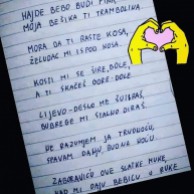 HAJDE BEBO BUDI FINA,
MOJA BEŠIKA TI TRAMBOLINA
MORA DA TI RASTE KOSA,
ŽELUDAC MI ISPOD NOSA.
KOSTI MI SE ŠIRE, BOLE,
A TI SKAČEŠ GORE-DOLE
LIJEVO-DESNO ME ŠUTIRAŠ,
BUBREGE MI STALNO DIRAŠ.
NE RAZUMJEM JA TRUDNOĆU,
SPAVAM DANJU, BUDNA NOĆU.
ZABORAVIĆU OVE SLATKE MUKE,
KAD MI DAJU BEBICU U RUKE